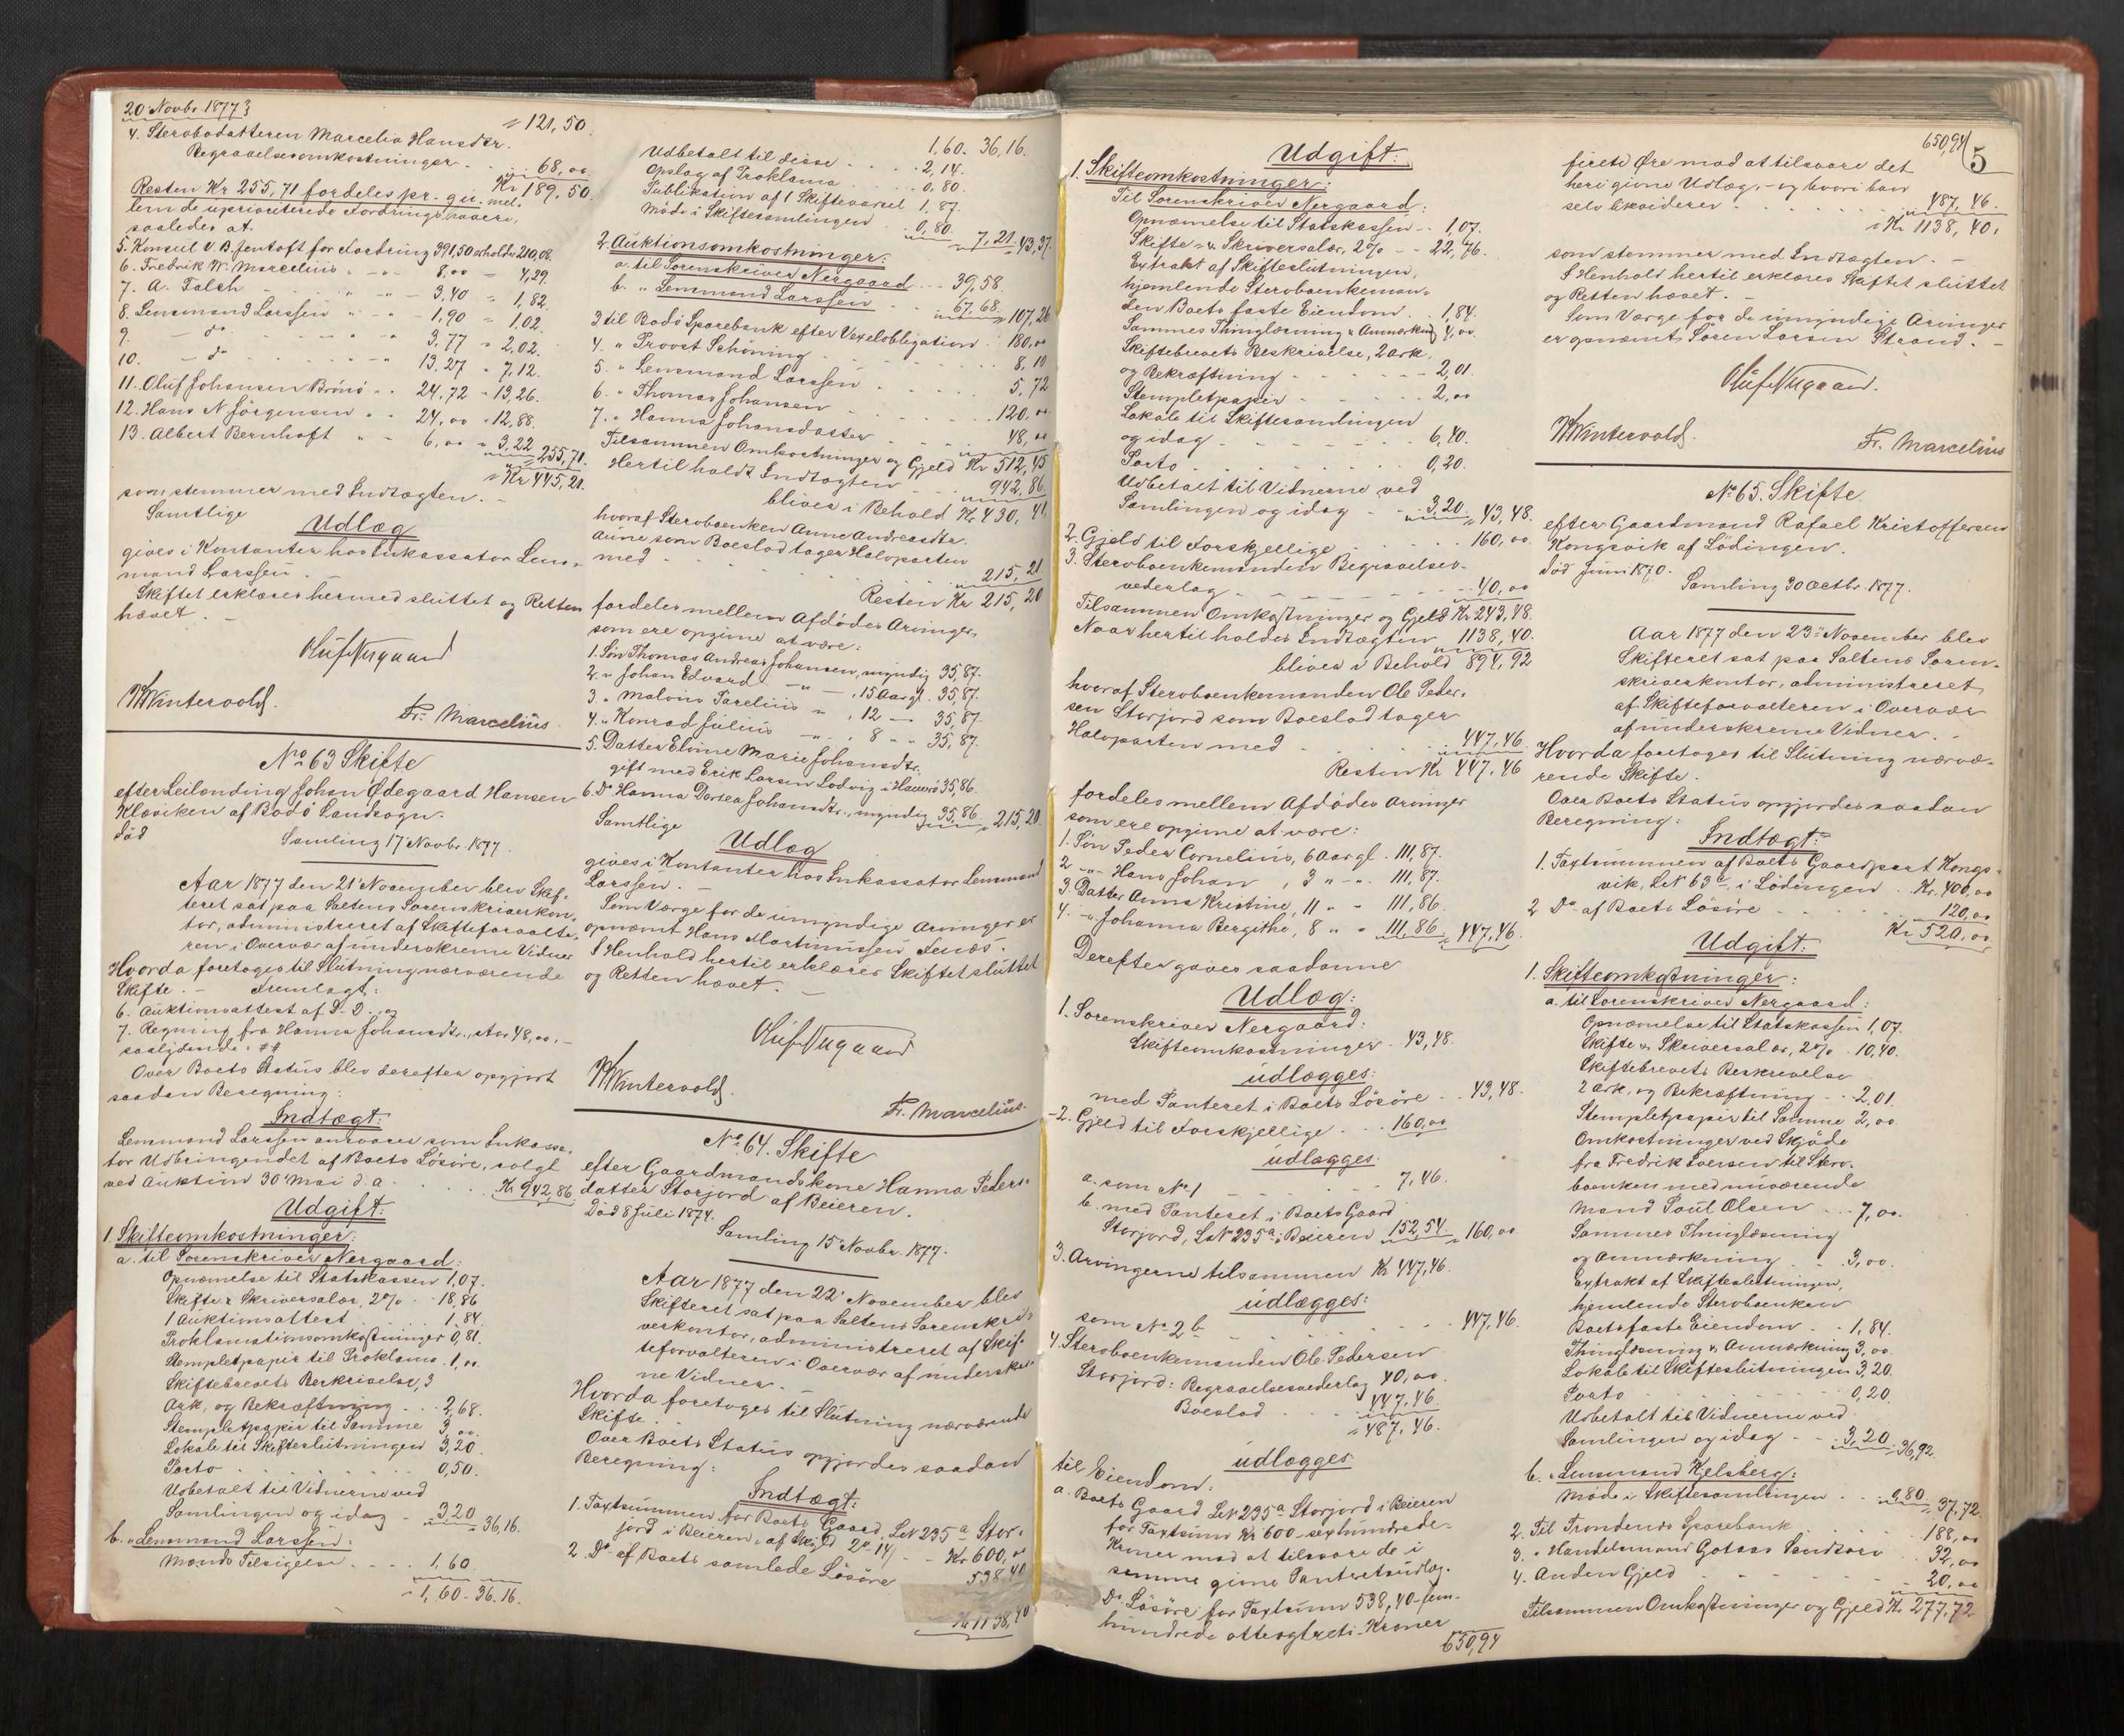 20 Novbr 1877
" 121,50.
4. Sterbodatteren Marcelia Hansdtr.
Begravelsesomkostninger . . 68,00
Kr 189,50.
Resten Kr 255,71 fordeles pr. qv. mel-
lem de uprioriterede Fordringshavere,
saaledes at
5. Konsul V. B. Jentoft for Fordring 391,50 erholder 210,08.
6. Fredrik W. Marcelius " - " 8,00 - 4,29.
7. A. Falch " - " 3,40 " 1,82.
8. Lensmand Larssen " - " 1,90 " 1,02.
9. - do - 3,77 " 2,02.
10. - do - 13,27 " 7,12.
11. Oluf Johansen Brönö " " 24,72 " 13,26.
12. Hans N. Jörgensen " " 24,00 " 12,88.
13. Albert Bernhoft " " 6,00 " 3,22
" 255,71.
Kr 445,21.
som stemmer med Indtægten. -
Samtlige
Udlæg
gives i Kontanter hos Inkassator Lens-
mand Larssen. -
Skiftet erklæres hermed sluttet og Retten
hævet. -
Oluf Nergaard
W Wintervold.
Fr. Marcelius.
No 63 Skifte
efter Leilænding Johan Ødegaard Hansen
Kløviken af Bodö Landsogn.
Död
Samling 17 Novbr. 1877.
Aar 1877 den 21 November blev Skif-
teret sat paa Saltens Sorenskriverkon-
tor, administreret af Skifteforvalte-
ren i Overvær af underskrevne Vidner
Hvorda foretoges til Slutning nærværende
Skifte. - Fremlagt:
6. Auktionsattest af D. D., og
7. Regning fra Hanna Johansdtr., stor 48,00, -
saalydende: ##
Over Boets Status blev derefter opgjort
saadan Beregning:
Indtægt:
Lensmand Larssen ansvarer som Inkassa-
tor Udbringendet af Boets Lösöre, solgt
ved Auktion 30 Mai d. a. . . . Kr 942,86.
Udgift:
1. Skifteomkostninger:
a. til Sorenskriver Nergaard:
Opnævnelse til Statskassen 1,07.
Skifte & Skriversalær, 2% . . 18,86
1 Auktionsattest . . . 1,84.
Proklamationsomkostninger 0,81.
Stempletpapir til Proklama . 1,00.
Skiftebrevets Beskrivelse, 3
Ark, og Bekræftning . . . 2,68.
Stempletpapir til Samme 3,00.
Lokale til Skifteslutningen 3,20.
Porto . . . . . 0,50.
Udbetalt til Vidnerne ved
Samlingen og idag . . 3,20 " 36,16.
b. " Lensmand Larssen:
Mands Tilsigelse . . . . 1,60.
" 1,60. 36.16.
1,60. 36,16.
Udbetalt til disse . . . . 2,14.
Opslag af Proklama . . . 0,80.
Publikation af 1 Skiftevarsel 1,87.
Möde i Skiftesamlingen . . 0,80. " 7,21. 43,37.
2. Auktionsomkostninger:
a. til Sorenskriver Nergaard . . . 39,58.
b. " Lensmand Larssen . . 67,68. " 107,26.
3 til Bodö Sparebank efter Vexelobligation . 180,00
4. " Provst Schöning . . . 8,10
5. " Lensmand Larssen . . . 5,72
6. " Thomas Johansen . . . 120,00
7. " Hanna Johansdatter . . . 48,00
Tilsammen Omkostninger og Gjeld Kr 512,45
Hertil holdt Indtægten . . 942,86
blives i Behold Kr 430,41
hvoraf Sterboenken Anne Andreasdtr.
Aune som Boeslod tager Halvparten
med . . . 215,21
Resten Kr 215,20
fordeles mellem Afdödes Arvinger,
som ere opgivne at være:
1. Sön Thomas Andreas Johansen, myndig 35,87.
2. " Johan Edvard - " - , 15 Aar gl . 35,87.
3. " Malvin Farelius " , 12 - " 35,87.
4. " Konrad Julius - " , 8 " " 35,87.
5. Datter Elvine Marie Johansdtr.
gift med Erik Larsen Lodvig i Hamerö 35,86.
6. Do Hanna Dorsea Johansdtr., myndig 35,86. " 215,20.
Samtlige
Udlæg
gives i Kontanter hos Inkassator Lensmand
Larssen. -
Som Værge for de umyndige Arvinger er
opnævnt Hans Martinussen Fenæs. -
I Henhold hertil erklæres Skiftet sluttet
og Retten hævet. -
Oluf Nergaard
W Wintervold.
Fr. Marcelius.
No 64. Skifte
efter Gaardmandskone Hanna Peders-
datter Storjord af Beieren.
Död 8 Juli 1874.
Samling 15 Novbr. 1877.
Aar 1877 den 22 November blev
Skifteret sat paa Saltens Sorenskri-
verkontor, administreret af Skif-
teforvalteren i Overvær af underskrev-
ne Vidner. -
Hvorda foretoges til Slutning nærværende
Skifte. -
Over Boets Status opgjordes saadan
Beregning:
Indtægt:
1. Taxtsummen for Boets Gaard, LN 235a Stor-
jord i Beieren, af Skyld 2 14 . . Kr 600,00
2. Do af Boets samlede Lösöre . . 538,40
Kr 1138,40
Udgift:
1. Skifteomkostninger:
Til Sorenskriver Nergaard:
Opnævnelse til Statskassen . . 1,07.
Skifte- & Skriversalær, 2% . . 22,76.
Extrakt af Skifteslutningen,
hjemlende Sterboenkeman-
den Boets faste Eiendom . . 1,84.
Sammes Thinglæsning & Anmærkning 4,00.
Skiftebrevets Beskrivelse, 2 Ark,
og Bekræftning . . . 2,01.
Stempletpapir . . . 2,00
Lokale til Skiftesamlingen
og idag . . . 6,40.
Porto . . . 0,20.
Udbetalt til Vidnerne ved
Samlingen og idag . . 3,20 " 43,48.
2. Gjeld til Forskjellige . . . 160,00
3. Sterboenkemanden Begravelses-
vederlag . . . 40,00
Tilsammen Omkostninger og Gjeld Kr 243,48.
Naar hertil holdes Indtægten 1138,40.
blives i Behold 894,92
hvoraf Sterboenkemanden Ole Peder-
sen Storjord som Boeslod tager
Halvparten med . . . 447,46
Resten Kr 447,46
fordeles mellem Afdödes Arvinger
som ere opgivne at være:
1. Sön Peder Cornelius, 6 Aar gl . 111,87.
2 - " - Hans Johan , 3 " - " 111,87.
3. Datter Anna Kristine, 11 " " 111,86.
4. - " - Johanna Bergithe, 8 " " 111,86. " 447,46.
Derefter gaves saadanne
Udlæg:
1. Sorenskriver Nergaard:
Skifteomkostninger . 43,48.
udlægges:
med Panteret i Boets Lösöre . . 43,48.
2. Gjeld til Forskjellige . . . 160,00
udlægges.
a. som No 1 . . . 7,46.
b. med Panteret i Boets Gaard
Storjord, LN 235a i Beieren 152,54. " 160,00
3. Arvingerne tilsammen Kr 447,46.
udlægges:
som No 2 b . . . 447,46.
4. Sterboenkemanden Ole Pedersen
Storjord: Begravelsesvederlag 40,00.
Boeslod . . . 447,46
" 487,46.
udlægges
til Eiendom:
a. Boets Gaard LN 235a Storjord i Beieren
for Taxtsum Kr 600 - sexhundrede-
Kroner mod at tilsvare de i
samme givne Panteretsudlæg.
Do Lösöre for Taxtsum 538,40 - fem-
hundrede otteogtreti - Kroner
650,94
650,94
5
fireti Øre mod at tilsvare det
heri givne Udlæg, - og hvori han
selv likviderer . . . 487,46.
Kr 1138,40.
som stemmer med Indtægten. -
I Henhold hertil erklæres Skiftet sluttet
og Retten hævet. -
Som Værge for de umyndige Arvinger
er opnævnt Sören Larsen Strand. -
Oluf Nergaard.
W Wintervold.
Fr. Marcelius
No 65. Skifte
efter Gaardmand Rafael Kristoffersen
Kongsvik af Lödingen.
Död Juni 1870.
Samling 30 Octbr. 1877.
Aar 1877 den 23 November blev
Skifteret sat paa Saltens Soren-
skriverkontor, administreret
af Skifteforvalteren i Overvær
af underskrevne Vidner. -
Hvorda foretoges til Slutning nærvæ-
rende Skifte.
Over Boets Status opgjordes saadan
Beregning:
Indtægt:
1. Taxtsummen af Boets Gaardpart Kongs-
vik, LN 63a, i Lödingen . Kr. 400,00
2 Do af Boets Lösöre . . . 120,00
Kr 520,00
Udgift:
1. Skifteomkostninger:
a. til Sorenskriver Nergaard:
Opnævnelse til Statskassen 1,07.
Skifte & Skriversalær, 2% . 10,40.
Skiftebrevets Beskrivelse
2 Ark, og Bekræftning . . 2,01.
Stempletpapir til Samme 2,00
Omkostninger ved Skjöde
fra Fredrik Iversen til Sterbo-
enken med nuværende
Mand Poul Olsen . . . 7,00.
Sammes Thinglæsning
og Anmærkning . . 3,00.
Extrakt af Skifteslutningen,
hjemlende Sterboenken
Boets faste Eiendom . . 1,84.
Thinglæsning & Anmærkning 3,00.
Lokale til Skifteslutningen 3,20.
Porto . . . 0,20
Udbetalt til Vidnerne ved
Samlingen og idag . . 3,20 " 36,92.
b. " Lensmand Kjelsberg:
Möde i Skiftesamlingen . . 0,80 " 37,72.
2. Til Trondenes Sparebank . . . 188,00
3. " Handelsmand Gotaas Sandtorv . 32,00
4. Anden Gjeld . . . 20,00
Tilsammen Omkostninger og Gjeld Kr 277,72